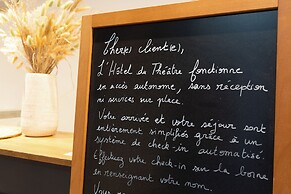 Cher(e) client(e),
L'Hôtel du Théâtre fonctionne
en accès autonome, sans réception
ni services sur place.
Votre arrivée et votre séjour sont
entièrement simplifiés grâce à un
système de check-in automatisé.
Effectuez votre check-in sur la borne
en renseignant votre nom.